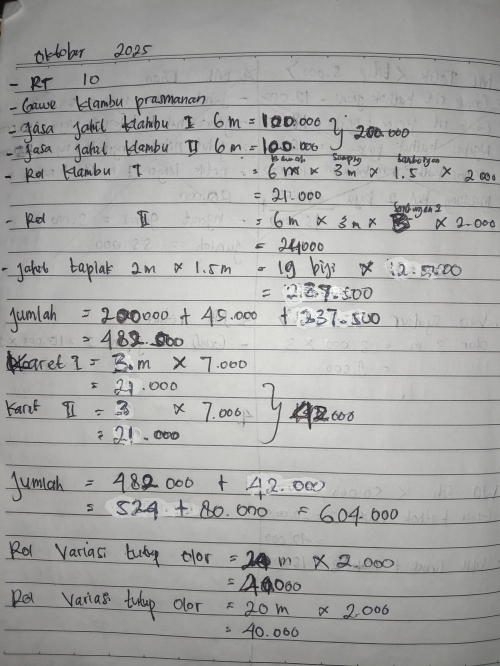 Oktober 2025
- RT 10
- Gawe klambu prasmanan
- Jasa jahit klambu I 6 m = 100.000 } 200.000
- Jasa jahit klambu II 6 m = 100.000
- Rol klambu I = 6 m x 3 m x 1.5 x 2 000
= 21.000
- Rol II = 6 m x 3 m x x 2.000
= 24000
- Jahit taplak 2m x 1.5 m = 19 biji x 12.500
= 237.500
Jumlah = 200000 + 45.000 + 237.500
= 482.500
Karet I = 3 m x 7.000
= 21.000
Karet II = 3 x 7.000 } 42.000
= 21.000
Jumlah = 482 000 + 42.000
= 524 + 80.000 = 604.000
Rol Variasi tutup olor = 20 m x 2.000
= 40.000
Rol Variasi tutup olor = 20 m x 2.000
= 40.000